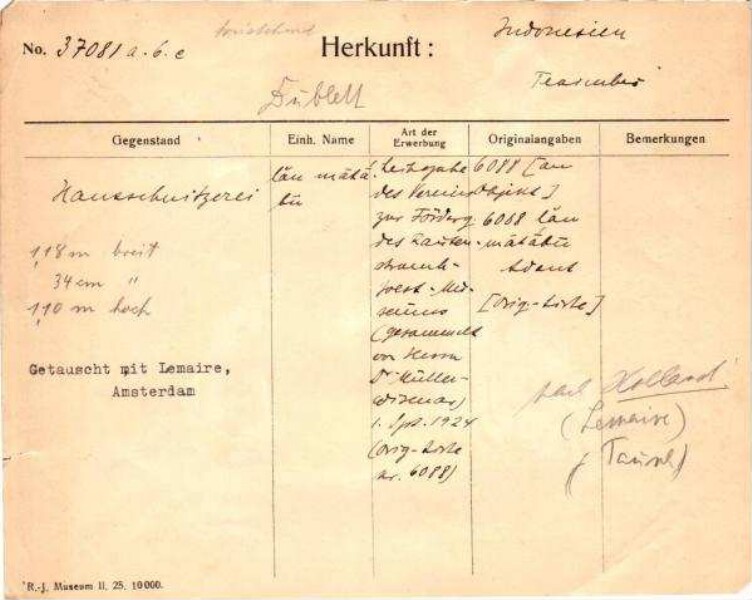 No. 37081 a. b. c
Herkunft :
Indonesien
Dublett
Gegenstand
Einh. Name
Art der
Erwerbung
Originalangaben
Bemerkungen
Hausschnitzerei
1,18 m breit
34 cm "
1,10 m hoch
Getauscht mit Lemaire,
Amsterdam
län mätä
bü
Leihgabe
des Vereins
zur Förderg
des Rauten-
strauch-
Joest-Mu-
seums
(gesammelt
von Herrn
Dr Müller-
Wismar)
1. Spt. 1924
(Orig-Liste
nr. 6088)
6088 [an
Objekt]
6068 län
mätäbü
[Orig-Liste]
nach Holland.
(Lemaire)
(Tausch)
R.-J. Museum II. 25. 10000.